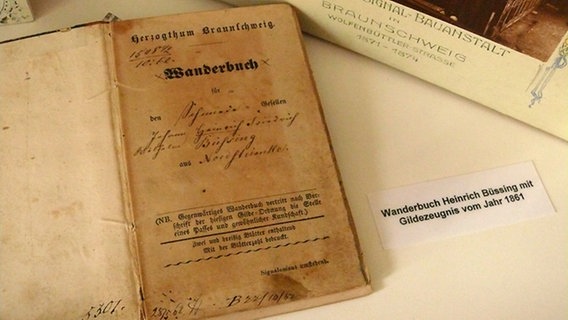 Herzogthum Braunschweig.
Wanderbuch
für
den Schmiede- Gesellen
Johann Heinrich Friedrich
Wilhelm Büssing
aus Nordsteimke.
(NB. Gegenwärtiges Wanderbuch vertritt nach Vor-
schrift der hiesigen Gilde-Ordnung die Stelle
eines Passes und gewöhnlicher Kundschaft.)
Zwei und dreißig Blätter enthaltend
Mit der Blätterzahl bedruckt.
Signalement umstehend.
5301.
B 22/10/62
SIGNAL-BAUANSTALT
IN
BRAUNSCHWEIG
WOLFENBÜTTLER-STRASSE
1871 - 1874
Wanderbuch Heinrich Büssing mit
Gildezeugnis vom Jahr 1861